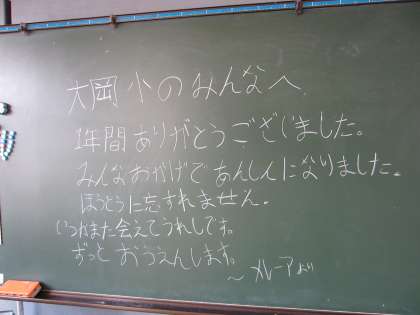 大岡小のみんなへ
1年間ありがとうございました。
みんなおかげであんしんになりました。
ほうとうに忘すれません。
いつかまた会えてうれしです。
ずっとおうえんします。
〜メレーアより